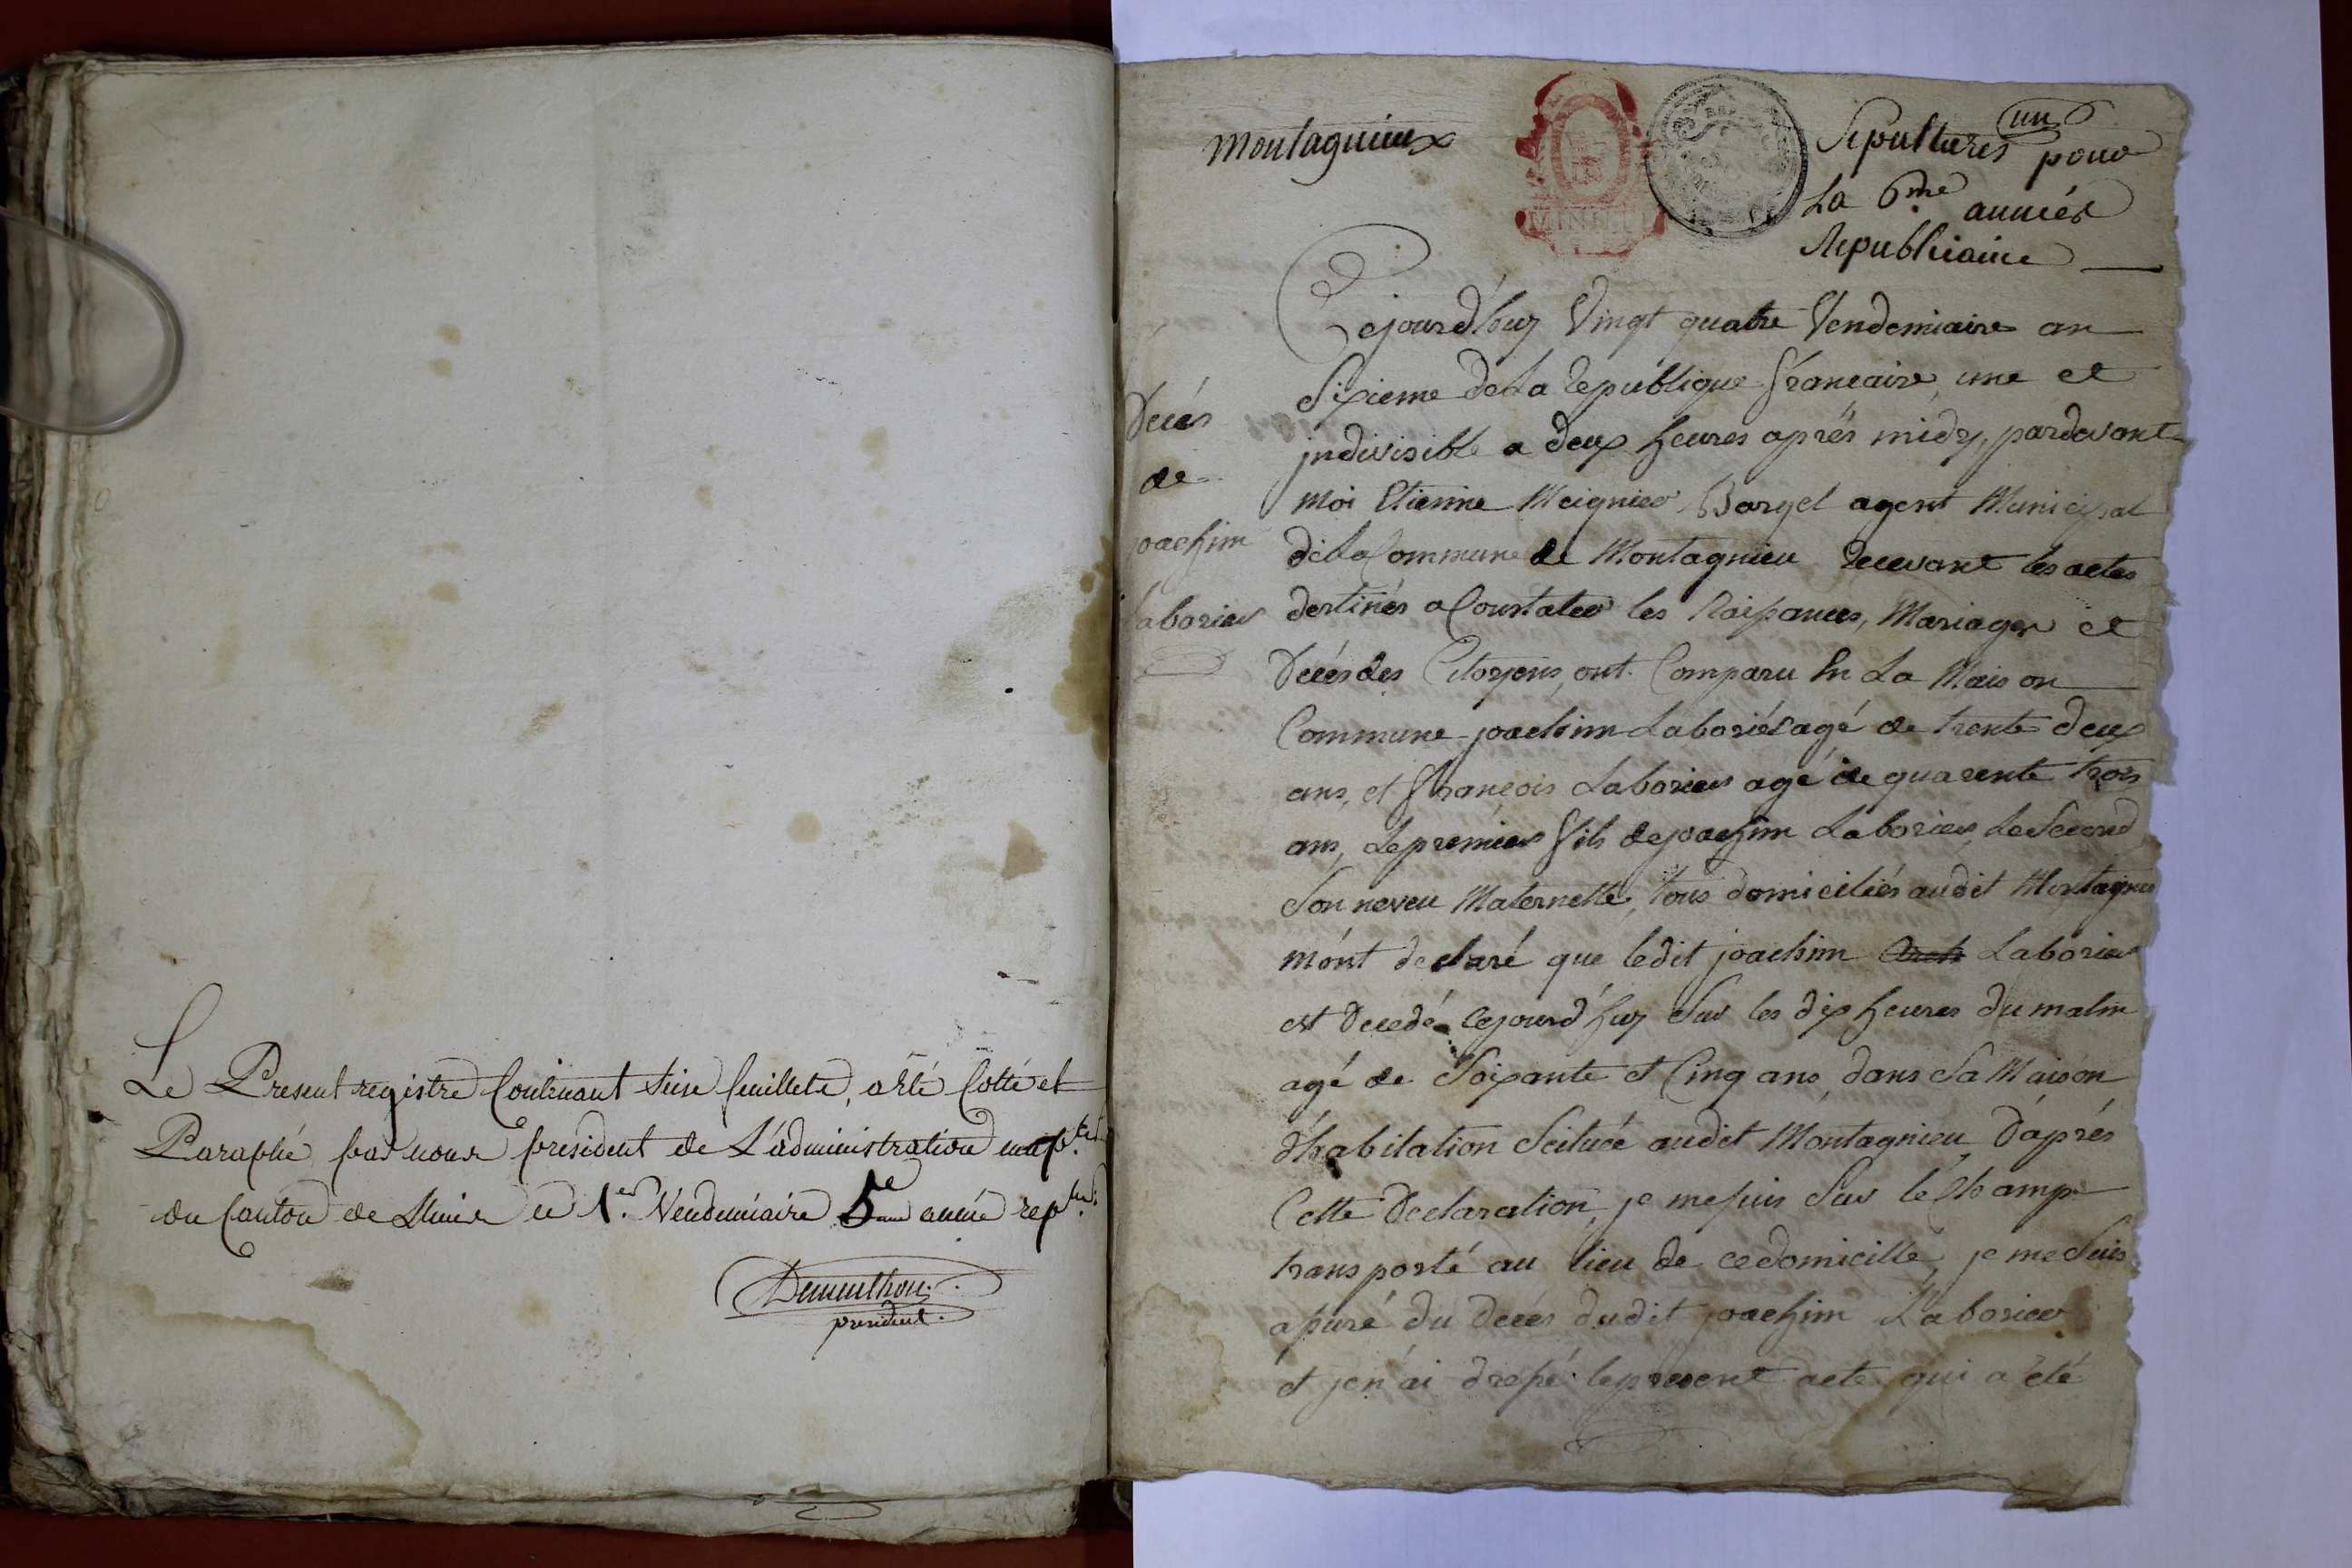 Le Present registre Contenant seise feuillets, a été Cotté et
Paraphé par nous president de L'administration mup.le
du Canton de Lhuis le 1.er Vendemiaire 5.eme année rep.ne
president.
Montagnieux
un
Sepultures pour
La 6me année
Republicaine
Cejourd'huy Vingt quatre Vendemiaire an
Sixieme de La republique francaise, une et
jndivisible a deux heures aprés midy, pardevant
moi Etienne Meignier Bargel agent Municipal
de la Commune de Montagnieu recevant les actes
destinés a Constater les Naissances, Mariages et
Decés des Citoyens, ont Comparu En La Maison
Commune joachim Laborier agé de trente deux
ans, et françois Laborier agé de quarente trois
ans, Le premier fils de joachim Laborier, Le Second
Son neveu Maternelle, tous domiciliés audit Montagnieu
m'ont declaré que ledit joachim Laborier
est Decedé cejourd'huy Sur les dix heures du matin
agé de Soixante et Cinq ans, dans Sa Maison
d'habitation Scituée audit Montagnieu, D'aprés
Cette Declaration, je me suis Sur le Champ
transporté au lieu de ce domicille, je me Suis
assuré du Decés dudit joachim Laborier
et j'en ai dressé le present acte qui a été
Decés
de
joachim
Laborier